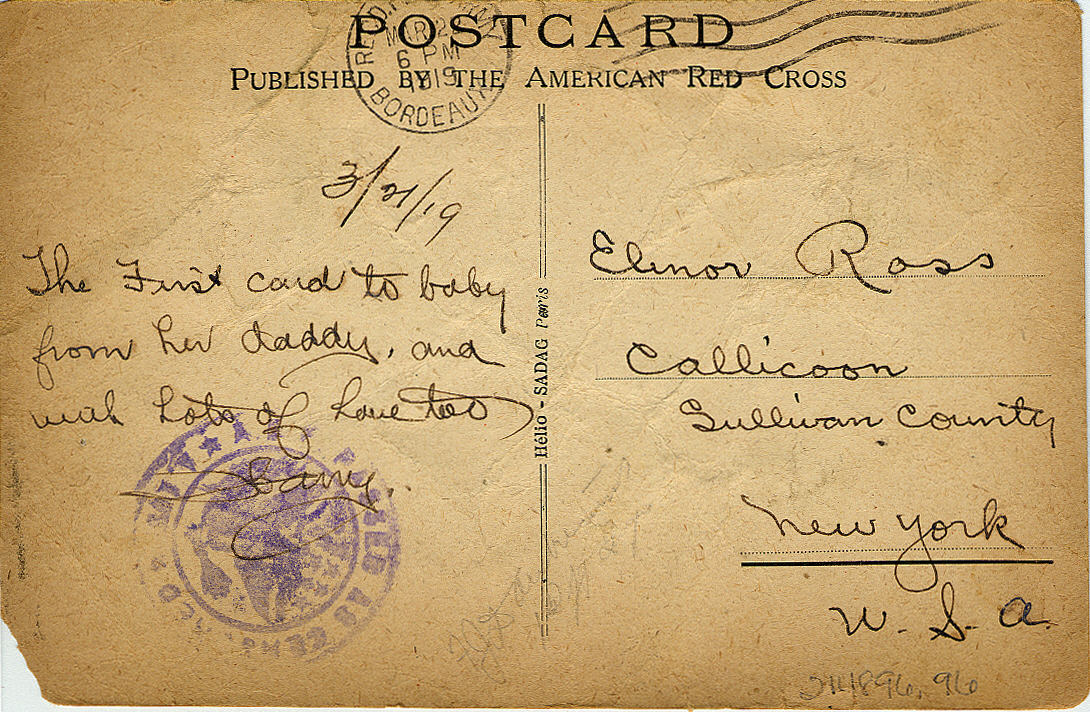 POSTCARD
PUBLISHED BY THE AMERICAN RED CROSS
MAR 2
6 PM
1919
BORDEAUX
3/21/19
The First card to baby
from her daddy, and
with Lots of Love too
Barry.
Hélio - SADAG Paris
Elinor Ross
Callicoon
Sullivan County
New York
U. S. A.
A.E.F.
244896.96